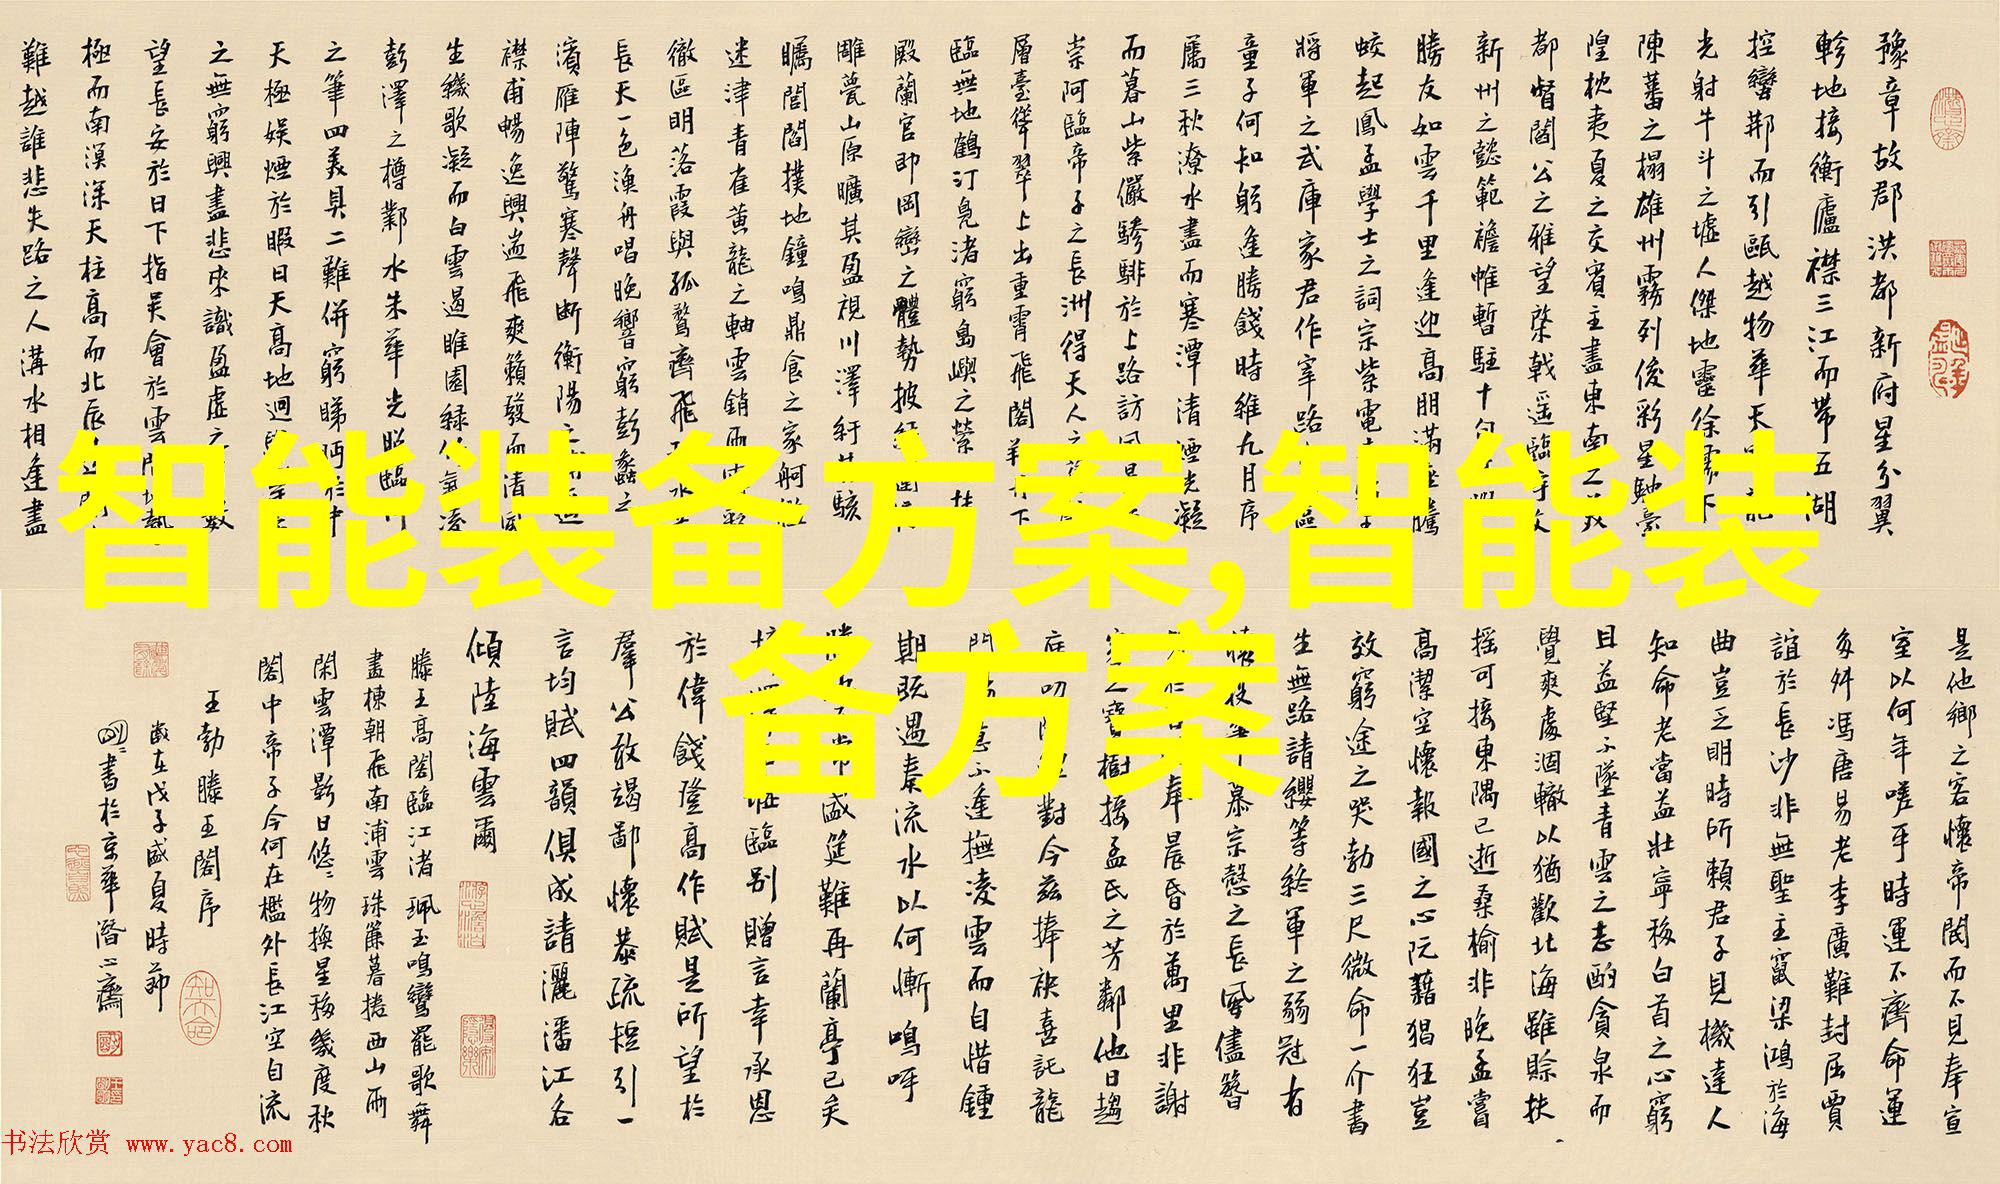 豫章故郡洪都新府星分翼
軫地接衡廬襟三江而帶五湖
控蠻荆而引甌越物華天龍
光射牛斗之墟人傑地靈徐孺下
陳蕃之榻雄州霧列俊彩星馳臺
隍枕夷夏之交賓主盡東南之美
都督閻公之雅望棨戟遥臨宇文
新州之懿範襜帷暫駐十旬
勝友如雲千里逢迎高朋滿座騰
蛟起鳳孟學士之詞宗紫電
將軍之武庫家君作宰路區
童子何知躬逢勝餞時維九月序
屬三秋潦水盡而寒潭清煙光凝
而暮山紫儼驂騑於上路訪風
崇阿臨帝子之長洲得天人之
層臺聳翠上出重霄飛閣下
臨無地鶴汀鳧渚窮島嶼之縈
殿蘭宮即岡巒之體勢披
雕甍山原曠其盈視川澤紆其駭
矚閭閻撲地鐘鳴鼎食之家舸艦
迷津青雀黄龍之軸雲銷雨
徹區明落霞與孤鶩齊飛水
長天一色漁舟唱晚響窮彭蠡之
濱雁陣驚寒聲断衡陽之
襟甫暢逸興遄飛爽籟發而清風
生纖歌凝而白雲遏睢園緑竹氣凌
彭澤之樽鄴水朱華光照臨川
之筆四美具二難併窮睇眄於中
天極娱煙於暇日天高地迥
之無窮興盡悲來識盈虚之數
望長安於日下指吴會於雲間地勢
極而南溟深天柱高而北辰
難越誰悲失路之人溝水相逢盡
智能装备方案,智能装
备方案
是他鄉之客懷帝閽而不見奉宣
室以何年嗟乎時運不齊命運
多舛馮唐易老李廣難封屈賈
誼於長沙非無聖主竄梁鴻於海
曲豈乏明時所賴君子見機達人
知命老當益壯寧移白首之心窮
且益堅不墜青雲之志酌貪泉而
覺爽處涸轍以猶歡北海雖賒扶
摇可接東隅已逝桑榆非晚孟嘗
高潔空懷報國之心阮藉猖狂豈
效窮途之哭勃三尺微命一介書
生無路請纓等終軍之弱冠有
慕宗慤之長風舍簪
奉晨昏於萬里非謝
之寶樹接孟氏之芳鄰他日趨
庭叨對今兹捧袂喜託龍
門不逢撫凌雲而自惜鍾
期既遇奏流水以何慚鳴呼
盛筵難再蘭亭已矣
臨别贈言幸承恩
於偉餞登高作賦是所望於
羣公敢竭鄙懷恭疏短引一
言均賦四韻俱成請灑潘江各
傾陸海雲爾
滕王高閣臨江渚珮玉鳴鸞罷歌舞
畫棟朝飛南浦雲珠簾暮捲西山雨
閑雲潭影日悠悠物換星移幾度秋
閣中帝子今何在檻外長江空自流
王勃滕王閣序
歲在戊子盛夏時節
書於京華潛心齋
书法欣赏 www.yac8.com